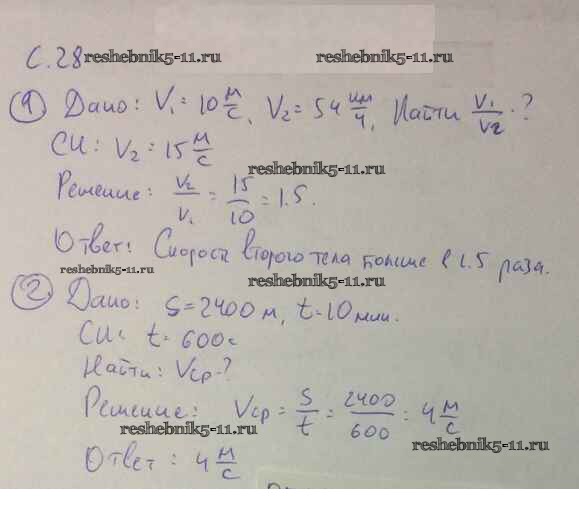 С.28 reshebnik5-11.ru reshebnik5-11.ru
1) Дано: V₁ = 10 м/с, V₂ = 54 км/ч, Найти V₁/V₂ - ?
СИ: V₂ = 15 м/с
reshebnik5-11.ru
Решение: V₂/V₁ = 15/10 = 1.5.
Ответ: Скорость второго тела больше в 1.5 раза.
reshebnik5-11.ru reshebnik5-11.ru
2) Дано: S = 2400 м, t = 10 мин.
СИ: t = 600 с
Найти: Vср - ?
Решение: Vср = S/t = 2400/600 = 4 м/с
reshebnik5-11.ru reshebnik5-11.ru
Ответ: 4 м/с